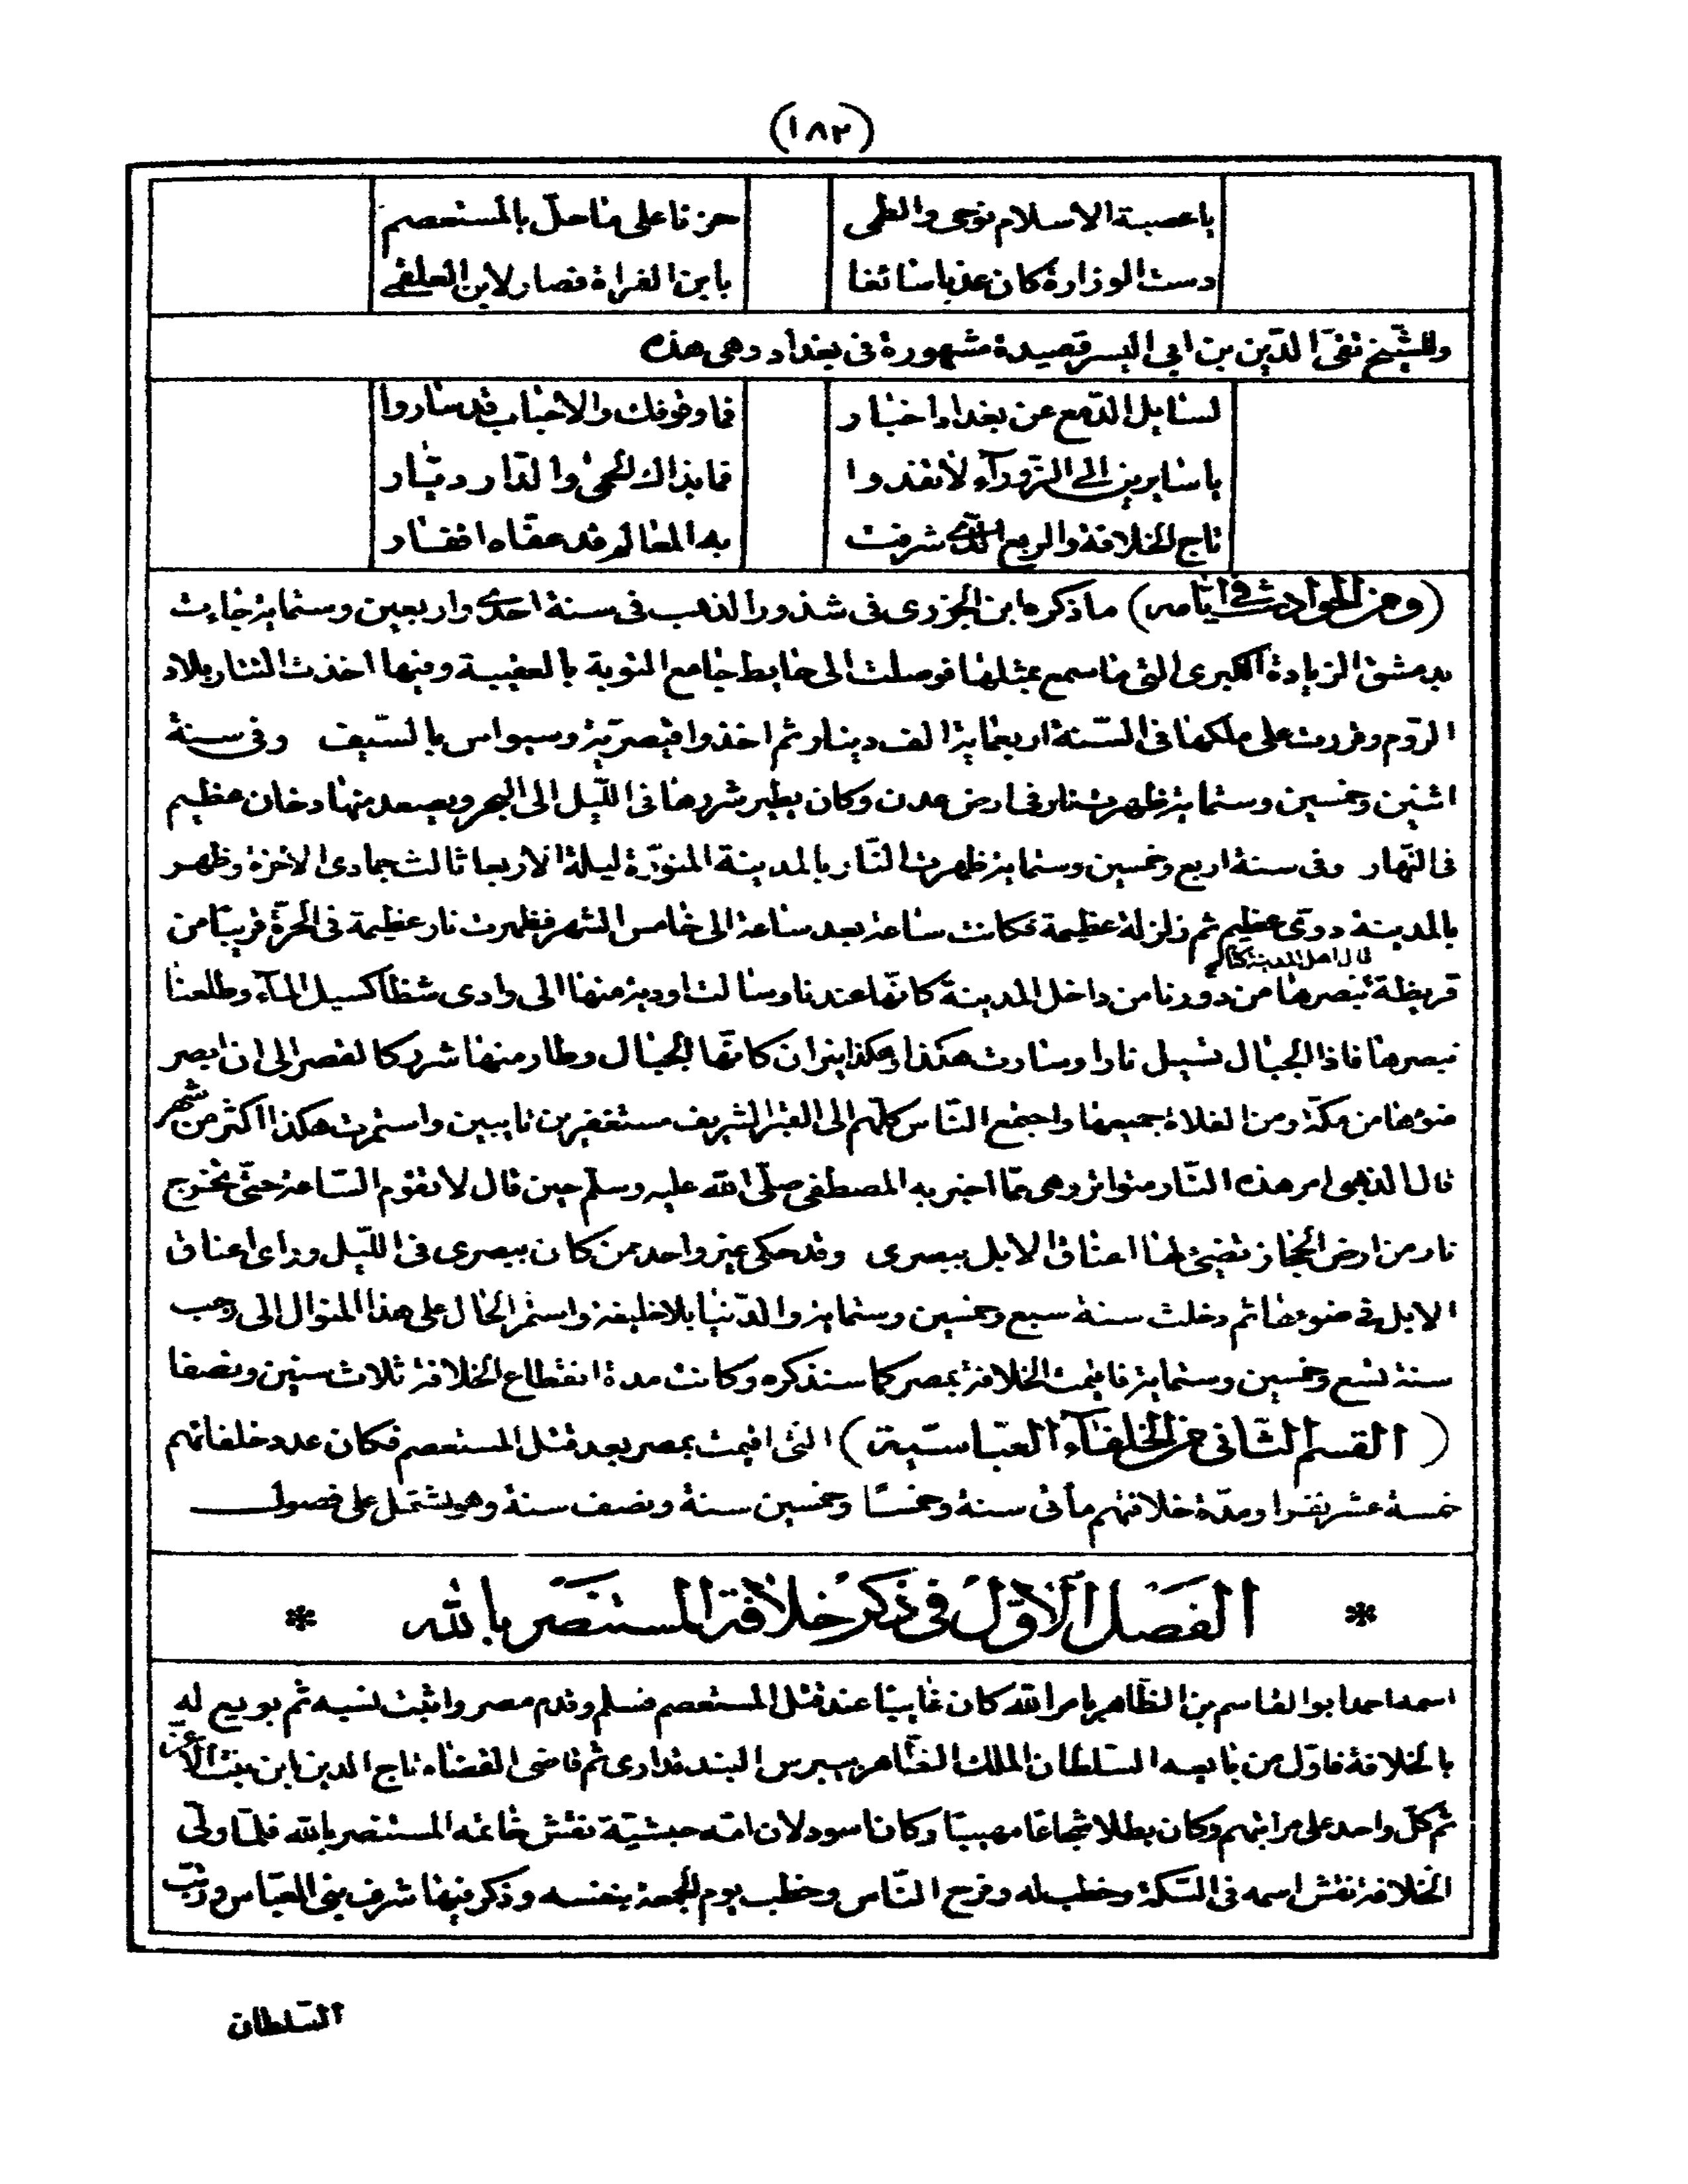 (١٨٢)
ياعصبة الاسلام نوحى والطمى حزنا على ماحل بالمستعصم
دست الوزارة كان عذبا سائغا بابن الفراة فصار لابن العلقمى
وللشيخ تقى الدين بن ابى اليسر قصيدة مشهورة فى بغداد وهى هذه
لسايل الدمع عن بغداد اخبار فما وقوفك والاحباب قد ساروا
ياسايرين الى الزوراء لاتفدوا فما بذاك الحمى والدار ديار
تاج الخلافة والربع الذى شرفت به المعالم قد عفاه اقفار
(ومن الحوادث فى ايامه) ماذكره ابن الجزرى فى شذور الذهب فى سنة احدى واربعين وستماية جاءت
بدمشق الزيادة الكبرى التى ماسمع بمثلها فوصلت الى حايط جامع التوبة بالعقيبة وفيها اخذت التتار بلاد
الروم وقررت على ملكها فى السنة اربعماية الف دينار ثم اخذوا قيصرية وسيواس بالسيف وفى سنة
اثنين وخمسين وستماية ظهرت نار فى ارض عدن وكان يطير شررها فى الليل الى البحر ويصعد منها دخان عظيم
فى النهار وفى سنة اربع وخمسين وستماية ظهرت النار بالمدينة المنورة ليلة الاربعا ثالث جمادى الاخرة وظهر
بالمدينة دوى عظيم ثم زلزلة عظيمة فكانت ساعة بعد ساعة الى خامس الشهر فظهرت نار عظيمة فى الحرة قريبا من
قال اهل المدينة كنا
قريظة نبصرها من دورنا من داخل المدينة كانها عندنا وسالت اودية منها الى وادى شظا كسيل الماء وطلعنا
نبصرها فاذا الجبال تسيل نارا وسارت هكذا وهكذا نيران كانها الجبال وطار منها شرر كالقصر الى ان ابصر
ضوءها من مكة ومن الفلاة جميعها واجتمع الناس كلهم الى القبر الشريف مستغفرين تايبين واستمرت هكذا اكثر من شهر
قال الذهبى امر هذه النار متواتر وهى مما اخبر به المصطفى صلى الله عليه وسلم حين قال لاتقوم الساعة حتى تخرج
نار من ارض الحجاز تضيئ لها اعناق الابل ببصرى وقد حكى غير واحد من كان ببصرى فى الليل وراى اعناق
الابل فى ضوءها ثم دخلت سنة سبع وخمسين وستماية والدنيا بلا خليفة واستمر الحال على هذا المنوال الى رجب
سنة تسع وخمسين وستماية فاقيمت الخلافة بمصر كما سنذكره وكانت مدة انقطاع الخلافة ثلاث سنين ونصفا
(القسم الثانى من الخلفاء العباسية) التى اقيمت بمصر بعد قتل المستعصم فكان عدد خلفائهم
خمسة عشر نفرا ومدة خلافتهم مأتى سنة وخمسا وخمسين سنة ونصف سنة وهو يشتمل على فصول
* الفصل الاول فى ذكر خلافة المستنصر بالله *
اسمه احمد ابو القاسم بن الظاهر بامر الله كان غايبا عند قتل المستعصم فسلم وقدم مصر واثبت نسبه ثم بويع له
بالخلافة فاول من بايعه السلطان الملك الظاهر بيبرس البندقدارى ثم قاضى القضاة تاج الدين ابن بنت الاعز
ثم كل واحد على مراتبهم وكان بطلا شجاعا مهيبا وكان اسود لان امه حبشية نقش خاتمه المستنصر بالله فلما ولى
الخلافة نقش اسمه فى السكة وخطب له وفرح الناس وخطب يوم الجمعة بنفسه وذكر فيها شرف بنى العباس ورتب
السلطان